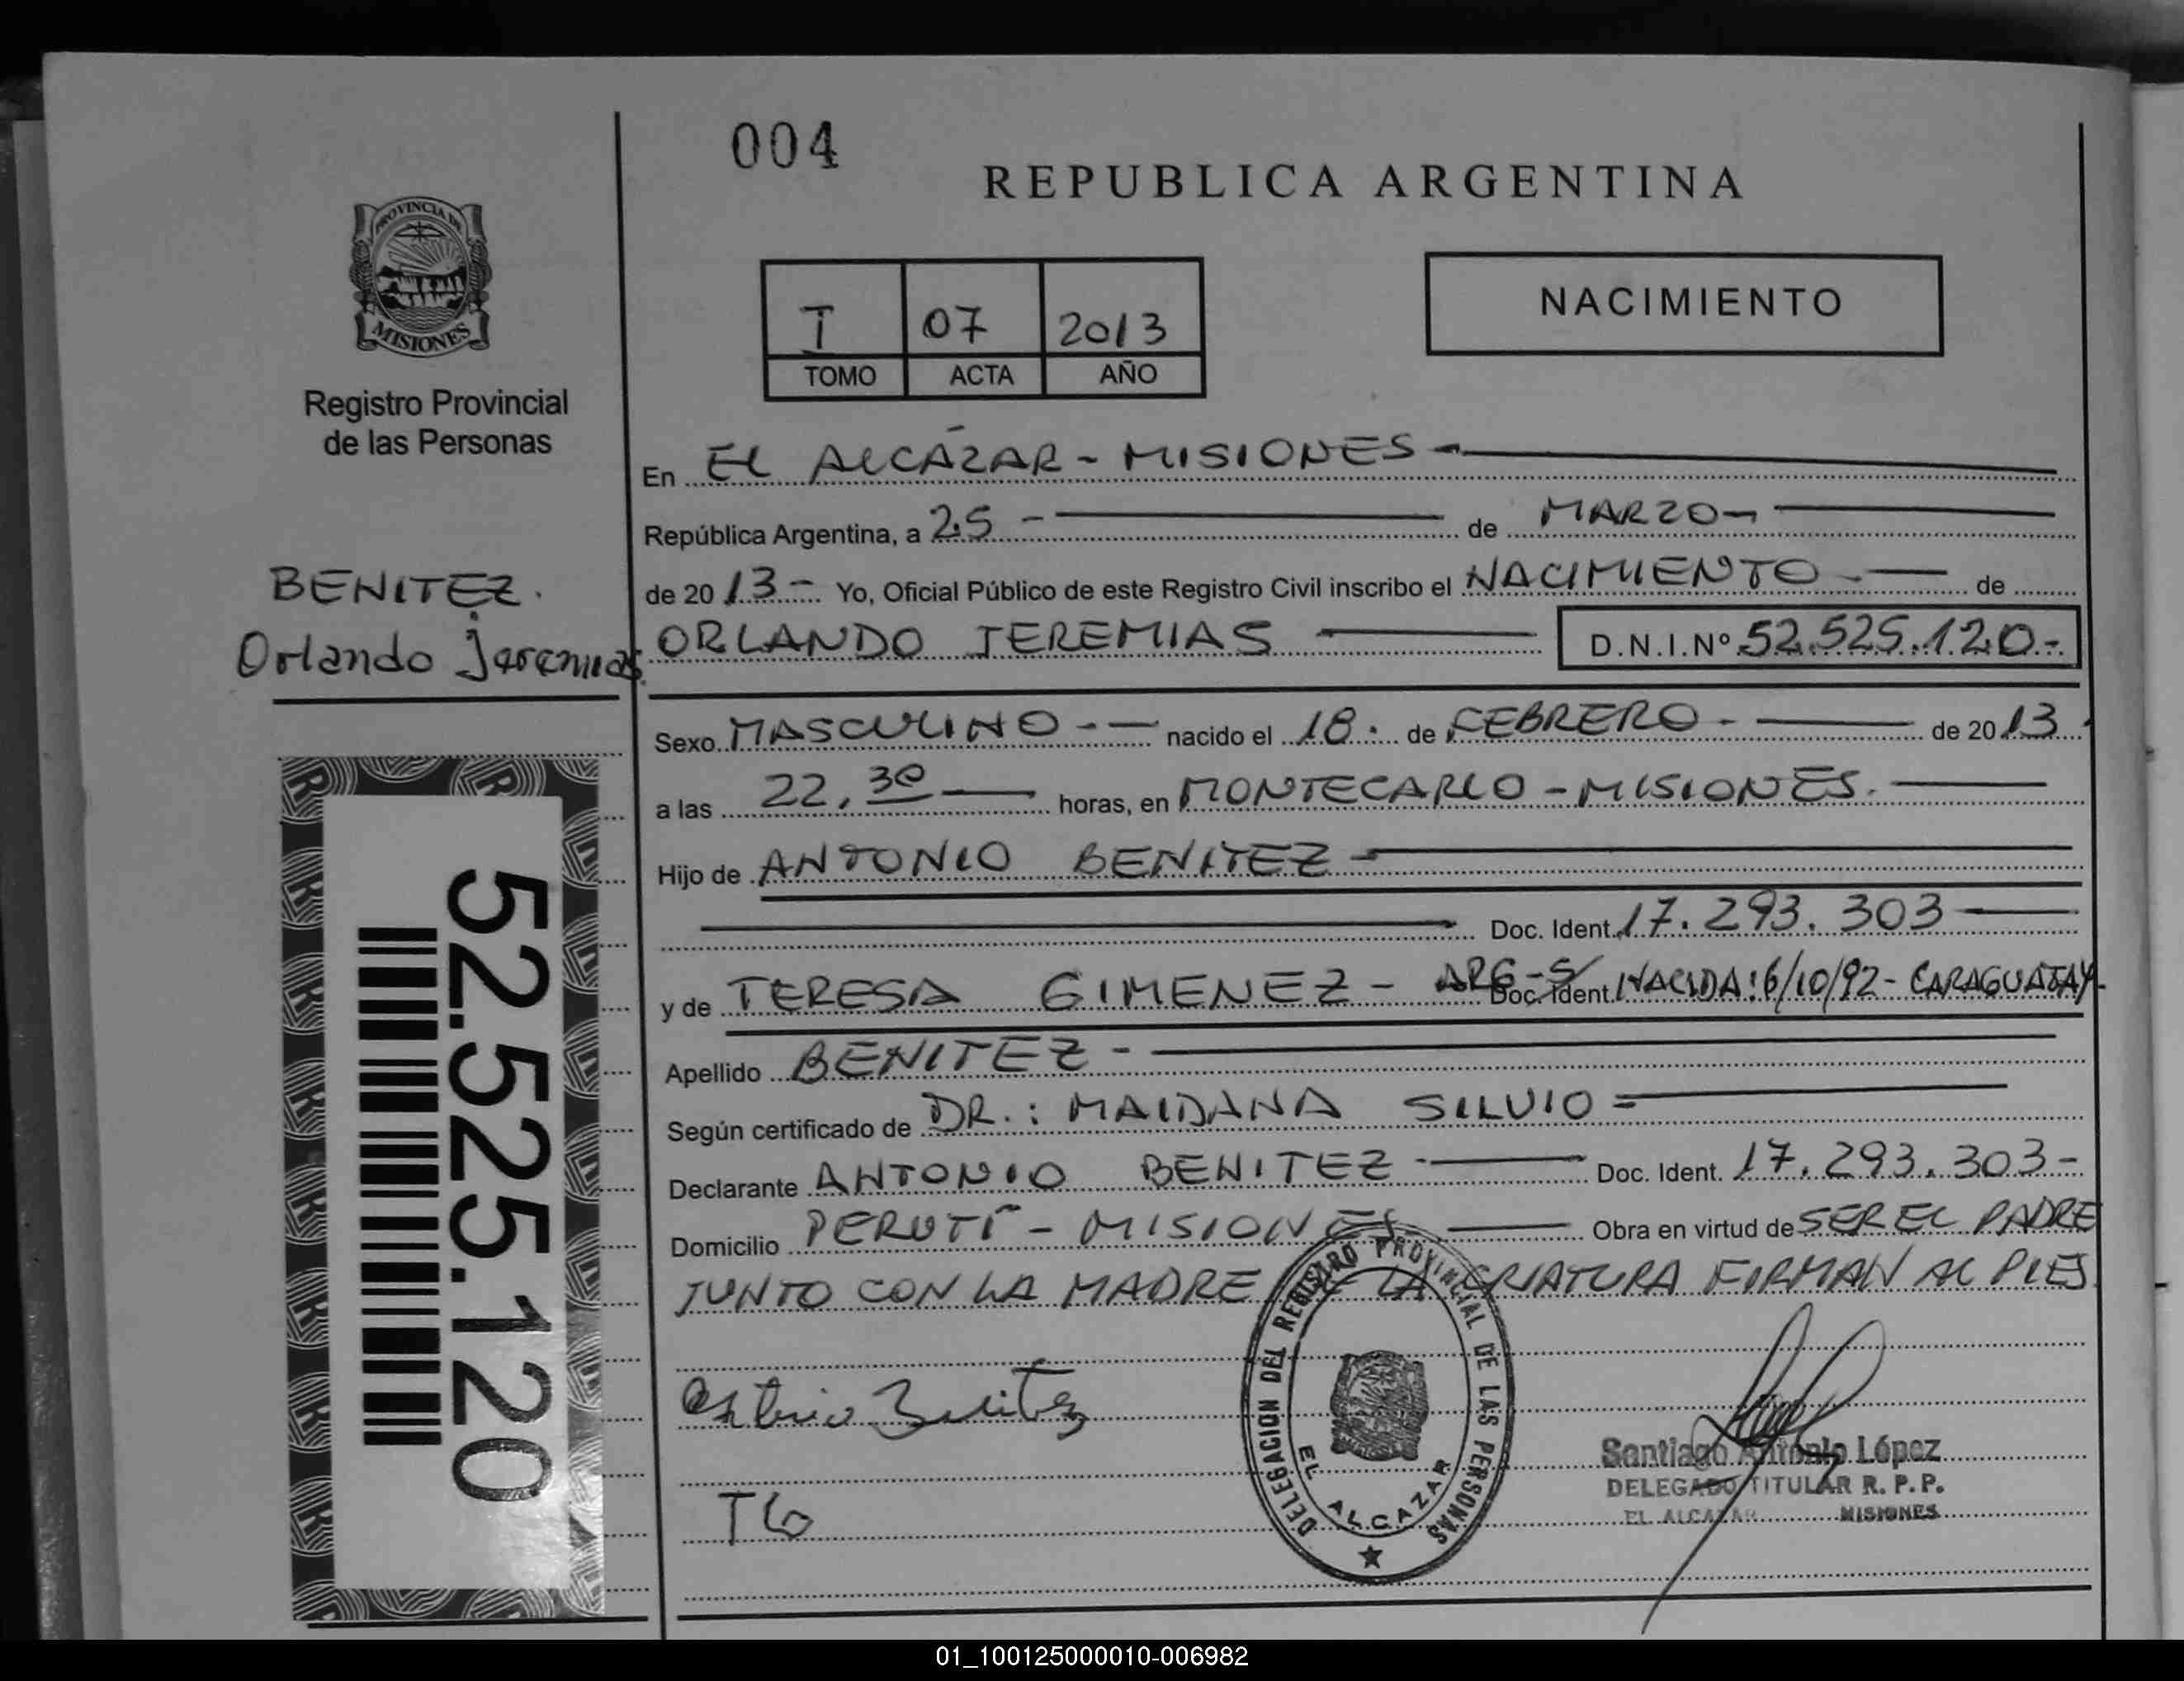 004
REPUBLICA ARGENTINA
PROVINCIA DE
MISIONES
Registro Provincial
de las Personas
I 07 2013
TOMO ACTA AÑO
NACIMIENTO
En EL ALCÁZAR - MISIONES -
República Argentina, a 25 - de MARZO -
de 20 13 - Yo, Oficial Público de este Registro Civil inscribo el NACIMIENTO - de
BENITEZ.
Orlando Jeremias
ORLANDO JEREMIAS D.N.I. Nº 52.525.120.-
Sexo MASCULINO - - nacido el 18. de FEBRERO - de 20 13.
a las 22,30 horas, en MONTECARLO - MISIONES.
Hijo de ANTONIO BENITEZ -
Doc. Ident. 17.293.303
y de TERESA GIMENEZ - ARG-S/ Doc. Ident. NACIDA: 6/10/92 - CARAGUATAY-
Apellido BENITEZ -
Según certificado de DR.: MAIDANA SILVIO =
Declarante ANTONIO BENITEZ - Doc. Ident. 17.293.303-
Domicilio PERUTÍ - MISIONES Obra en virtud de SER EL PADRE
JUNTO CON LA MADRE DE LA CRIATURA FIRMAN AL PIES.
52.525.120
DELEGACION DEL REGISTRO PROVINCIAL DE LAS PERSONAS
EL ALCAZAR
Benitez
TG
Santiago Antonio López
DELEGADO TITULAR R. P. P.
EL ALCAZAR MISIONES
01_100125000010-006982